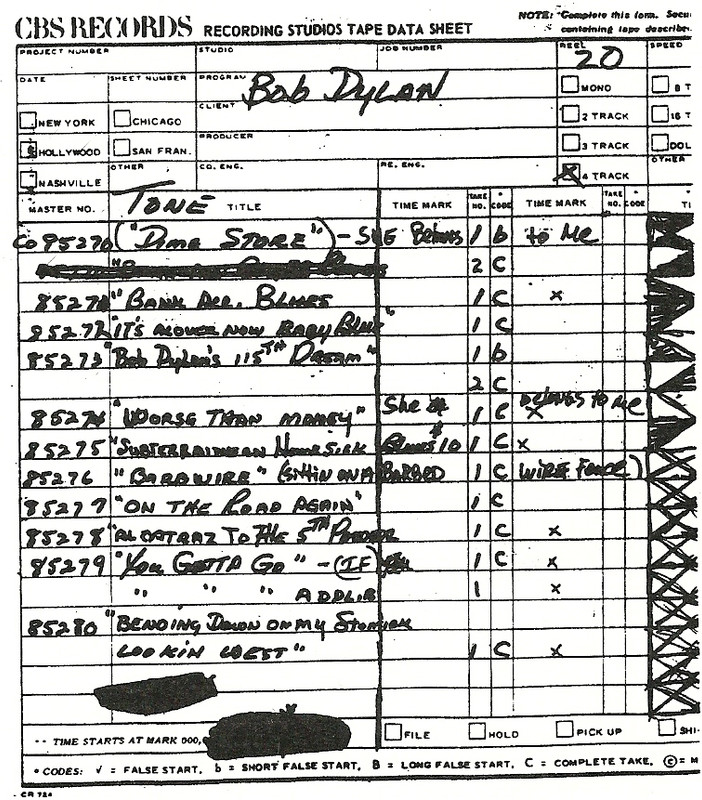 CBS RECORDS RECORDING STUDIOS TAPE DATA SHEET
NOTE: "Complete this form. Secu
containing tape describe
PROJECT NUMBER STUDIO JOB NUMBER REEL 20 SPEED
DATE SHEET NUMBER PROGRAM Bob Dylan MONO 8 T
CLIENT
NEW YORK CHICAGO 2 TRACK 16 T
PRODUCER
HOLLYWOOD SAN FRAN. 3 TRACK DOL
OTHER CO. ENG. RE. ENG. OTHER
NASHVILLE 4 TRACK
MASTER NO. TONE TITLE TIME MARK TAKE NO. * CODE TIME MARK TAKE NO. * CODE TI
CO 85270 ("DIME STORE") - SHE Belongs 1 b to Me
2 C
"BANK ACC. BLUES 1 C x
85272 "IT'S ALOVER NOW BABY BLUE" 1 C
85273 "Bob Dylan's 115TH DREAM" 1 b
2 C
85274 "WORSE THAN MONEY" She 1 C belongs to Me x
85275 "SUBTERRAINEAN HOMESICK BLUES 10 1 C x
85276 "BARBWIRE" (SITTIN ON A BARBED 1 C WIRE FENCE)
85277 "ON THE ROAD AGAIN" 1 C
85278 "ALCATRAZ TO THE 5TH 1 C x
85279 "YOU GOTTA GO" - (IF) 1 C x
" " " ADDLIB 1 x
85280 "BENDING DOWN ON MY STOMICK
LOOKIN WEST" 1 C x
-- TIME STARTS AT MARK 000, FILE HOLD PICK UP SHI
* CODES: √ = FALSE START, b = SHORT FALSE START, B = LONG FALSE START, C = COMPLETE TAKE, Ⓒ = M
CR 724